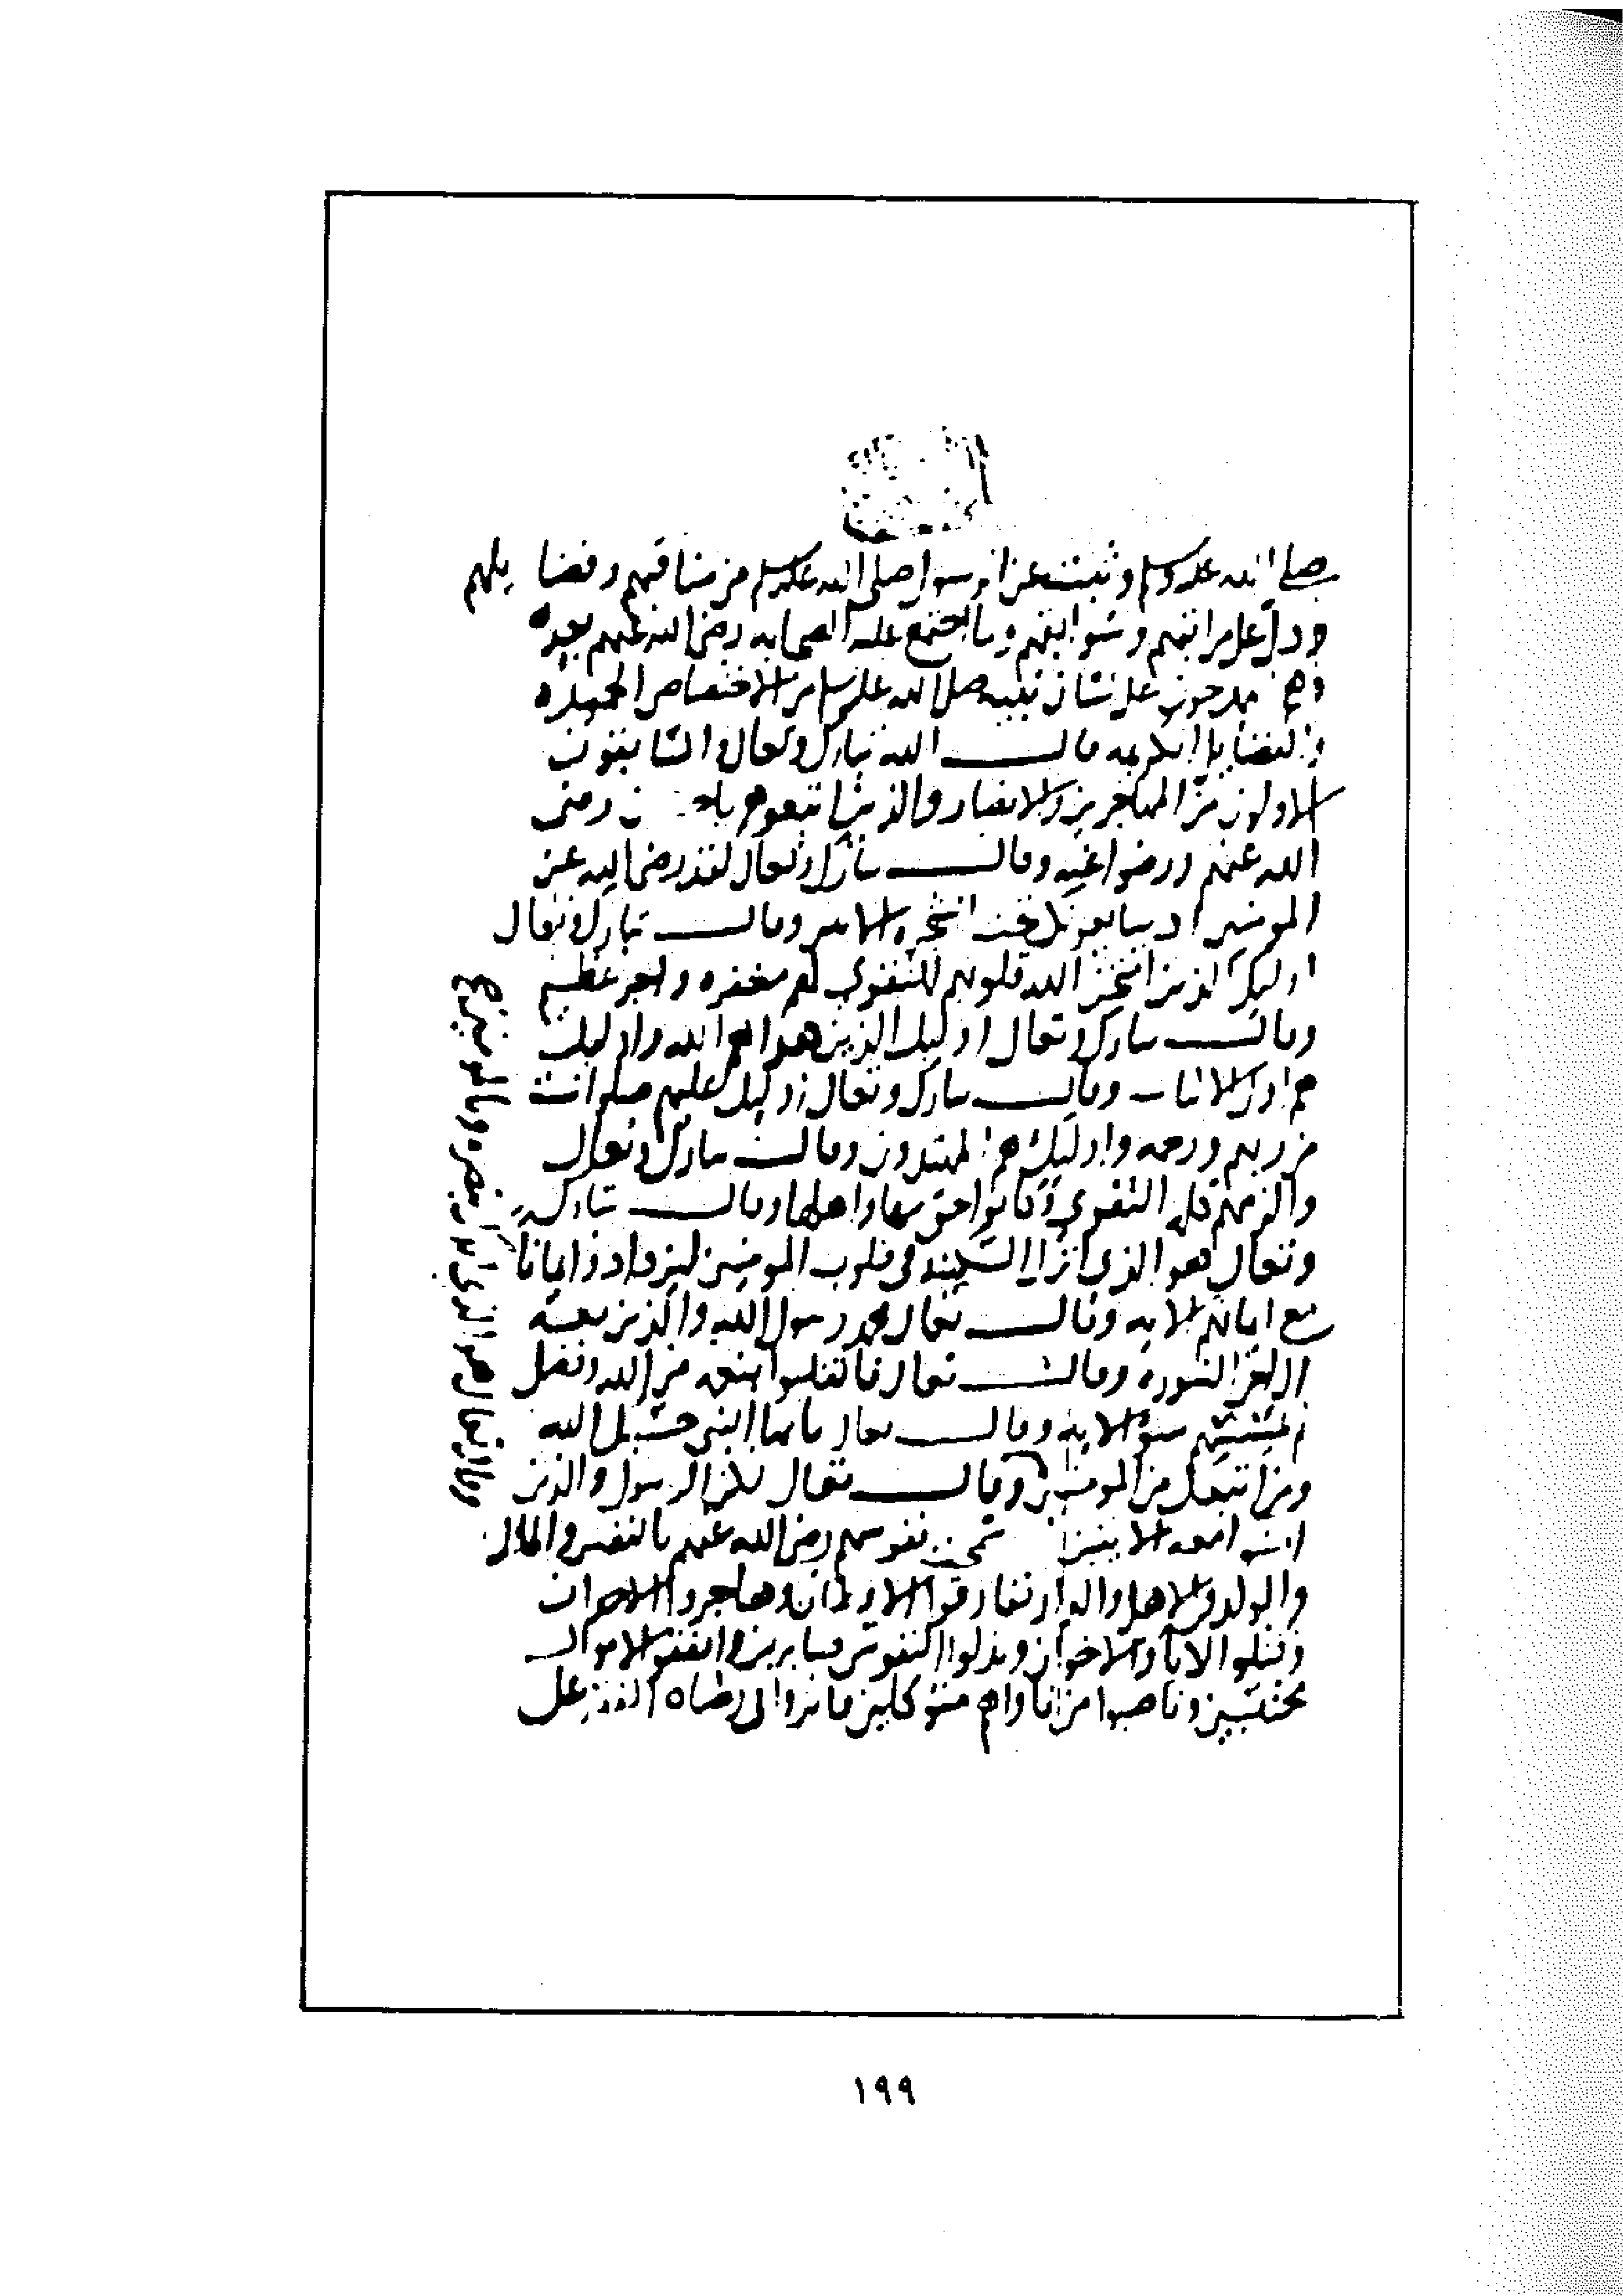 صلى الله عليه وسلم وثبت عن الرسول صلى الله عليه وسلم من مناقبهم وفضايلهم
ودل على مراتبهم وسوابقهم وما اجتمع عليه الصحابه رضى الله عنهم بعده
نبيه صلى الله عليه وسلم من الاختصاص
والفضايل الكريمه قال الله تبارك وتعالى والسابقون
الاولون من المهاجرين والانصار والذين اتبعوهم رضى
الله عنهم ورضوا عنه وقال تبارك وتعالى لقد رضى الله عن
المومنين اذ يبايعونك تحت الشجره الايه وقال تبارك وتعالى
اوليك الذين امتحن الله قلوبهم للتقوى لهم مغفره واجر عظيم
وقال تبارك وتعالى اوليك الذين هداهم الله واوليك
هم اولوا الالباب وقال تبارك وتعالى اوليك عليهم صلوات
من ربهم ورحمه واوليك هم المهتدون وقال تبارك وتعالى
والزمهم كلمه التقوى وكانوا احق بها واهلها وقال تبارك
وتعالى هو الذى انزل السكينه فى قلوب المومنين ليزدادوا ايمانا
مع ايمانهم الايه وقال تعالى محمد رسول الله والذين معه
الى اخر السوره وقال تعالى فانقلبوا بنعمه من الله وفضل
لم يمسسهم سوء الايه وقال تعالى يا ايها النبى حسبك الله
ومن اتبعك من المومنين وقال تعالى لكن الرسول والذين
امنوا معه الايتين نفوسهم رضى الله عنهم بالنفس والمال
والولد والاهل والدار ففارقوا الاوطان وهاجروا الاخوان
وقتلوا الابا والاخوان وبذلوا النفوس صابرين وانفقوا الاموال
محتسبين وناصبوا من ناواهم متوكلين فاثروا رضاه على
وقال تعالى هو الذى ايدك بنصره وبالمومنين
١٩٩